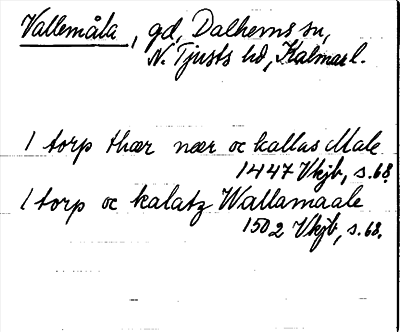 Vallemåla, gd, Dalhems sn,
N. Tjusts hd, Kalmar l.
1 torp thær nær oc kallas Male
1447 Vkjb, s. 68.
1 torp oc kalatz Wallamaale
1502 Vkjb, s. 68.